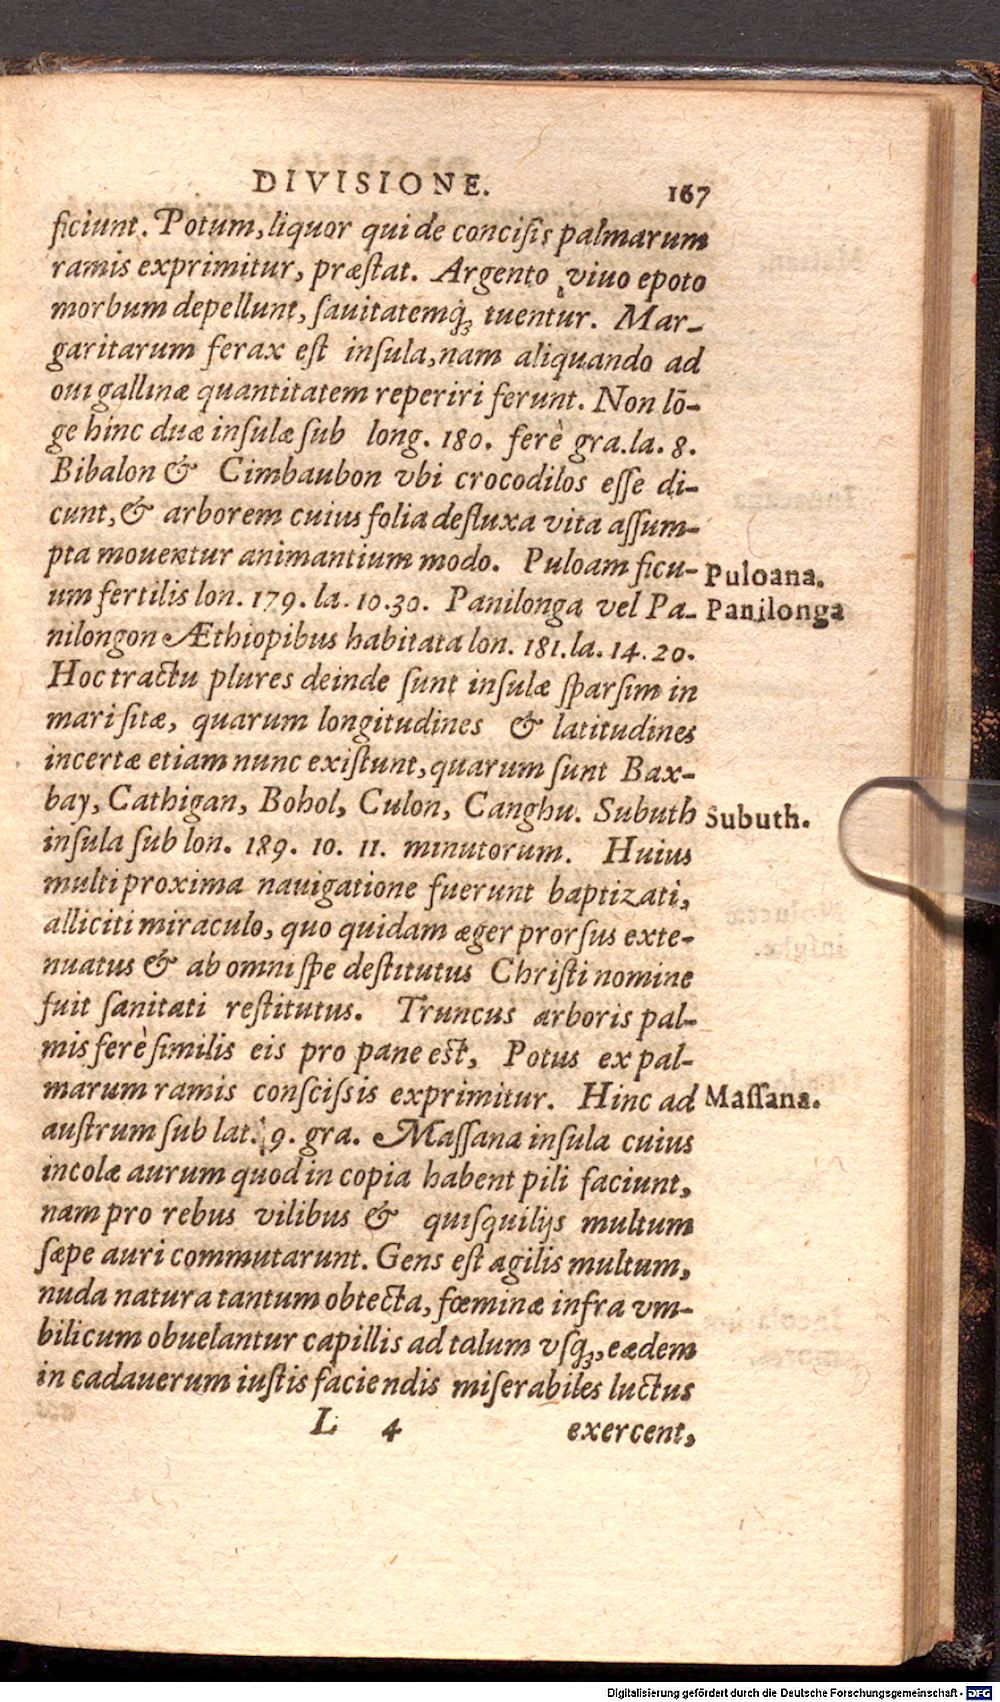 DIVISIONE. 167
ficiunt. Potum, liquor qui de concisis palmarum
ramis exprimitur, præstat. Argento viuo epoto
morbum depellunt, sauitatemq́; tuentur. Mar-
garitarum ferax est insula, nam aliquando ad
oui gallinæ quantitatem reperiri ferunt. Non lō-
ge hinc duæ insulæ sub long. 180. ferè gra. la. 8.
Bibalon & Cimbaubon vbi crocodilos esse di-
cunt, & arborem cuius folia defluxa vita assum-
pta mouentur animantium modo. Puloam ficu-
Puloana.
um fertilis lon. 179. la. 10.30. Panilonga vel Pa-
Panilonga
nilongon Æthiopibus habitata lon. 181. la. 14. 20.
Hoc tractu plures deinde sunt insulæ sparsim in
mari sitæ, quarum longitudines & latitudines
incertæ etiam nunc existunt, quarum sunt Bax-
bay, Cathigan, Bohol, Culon, Canghu. Subuth
Subuth.
insula sub lon. 189. 10. 11. minutorum. Huius
multi proxima nauigatione fuerunt baptizati,
alliciti miraculo, quo quidam æger prorsus exte-
nuatus & ab omni spe destitutus Christi nomine
fuit sanitati restitutus. Truncus arboris pal-
mis ferè similis eis pro pane est, Potus ex pal-
marum ramis conscissis exprimitur. Hinc ad
Massana.
austrum sub lat. 9. gra. Massana insula cuius
incolæ aurum quod in copia habent pili faciunt,
nam pro rebus vilibus & quisquilijs multum
sæpe auri commutarunt. Gens est agilis multum,
nuda natura tantum obtecta, fœminæ infra vm-
bilicum obuelantur capillis ad talum vsq;, eædem
in cadauerum iustis faciendis miserabiles luctus
L 4 exercent,
Digitalisierung gefördert durch die Deutsche Forschungsgemeinschaft - DFG